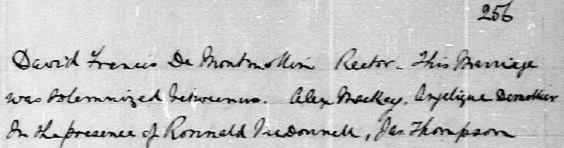 256
David Francis De Montmollin Rector - This Marriage
was solemnized between us. Alex Mackey, Angelique Demollier
In the presence of Ronnald McDonnell, Jas Thompson